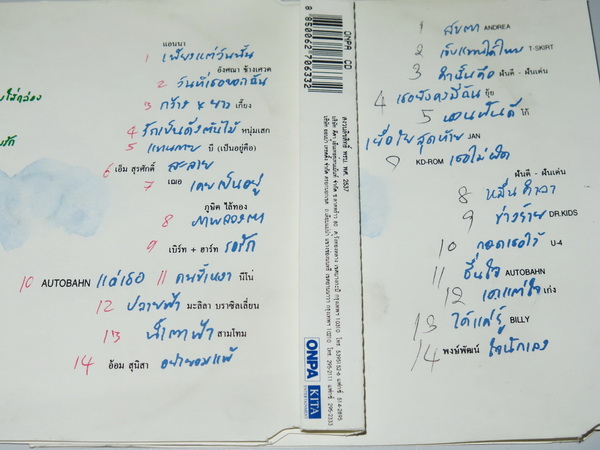 แอนนา
1 เพียงแต่วันนั้น
อังศณา ช้างเศวต
2 วันที่เธอบอกฉัน
3 กว้าง x ยาว เกี๊ยง
4 รักเป็นดั่งต้นไม้ หนุ่มเสก
5 แทนตาย บี (เป็นอยู่คือ)
6 เอ็ม สุรศักดิ์ ละลาย
7 เฌอ เคยเป็นอยู่
ภูษิต ไล้ทอง
8 ภาพลวงตา
9 เบิร์ท + ฮาร์ท รอรัก
10 AUTOBAHN แด่เธอ 11 คนขี้เหงา นีโน่
12 ปลายฟ้า มะลิลา บราซิลเลี่ยน
13 น้ำตาฟ้า สามโทน
14 อ้อม สุนิสา อย่ายอมแพ้
8 850062 706332
ONPA CD
สงวนลิขสิทธิ์ พรบ. พศ. 2537
ONPA
KITA
ENTERTAINMENT
1 สบตา ANDREA
2 เจ็บแทนได้ไหม T-SKIRT
3 คำนั้นคือ ฟันดี - ฟันเด่น
4 เธอยังคงมีฉัน อุ้ย
5 นอนฝันดี โก้
เยื่อใยสุดท้าย JAN
7 KD-ROM เธอไม่ผิด
ฟันดี - ฟันเด่น
8 หมื่นคำลา
9 ข่าวร้าย DR.KIDS
10 กอดเธอไว้ U-4
11 ชื่นใจ AUTOBAHN
12 เดาแต่ใจ เก่ง
13 ได้แค่รู้ BILLY
14 พงษ์พัฒน์ ใจนักเลง